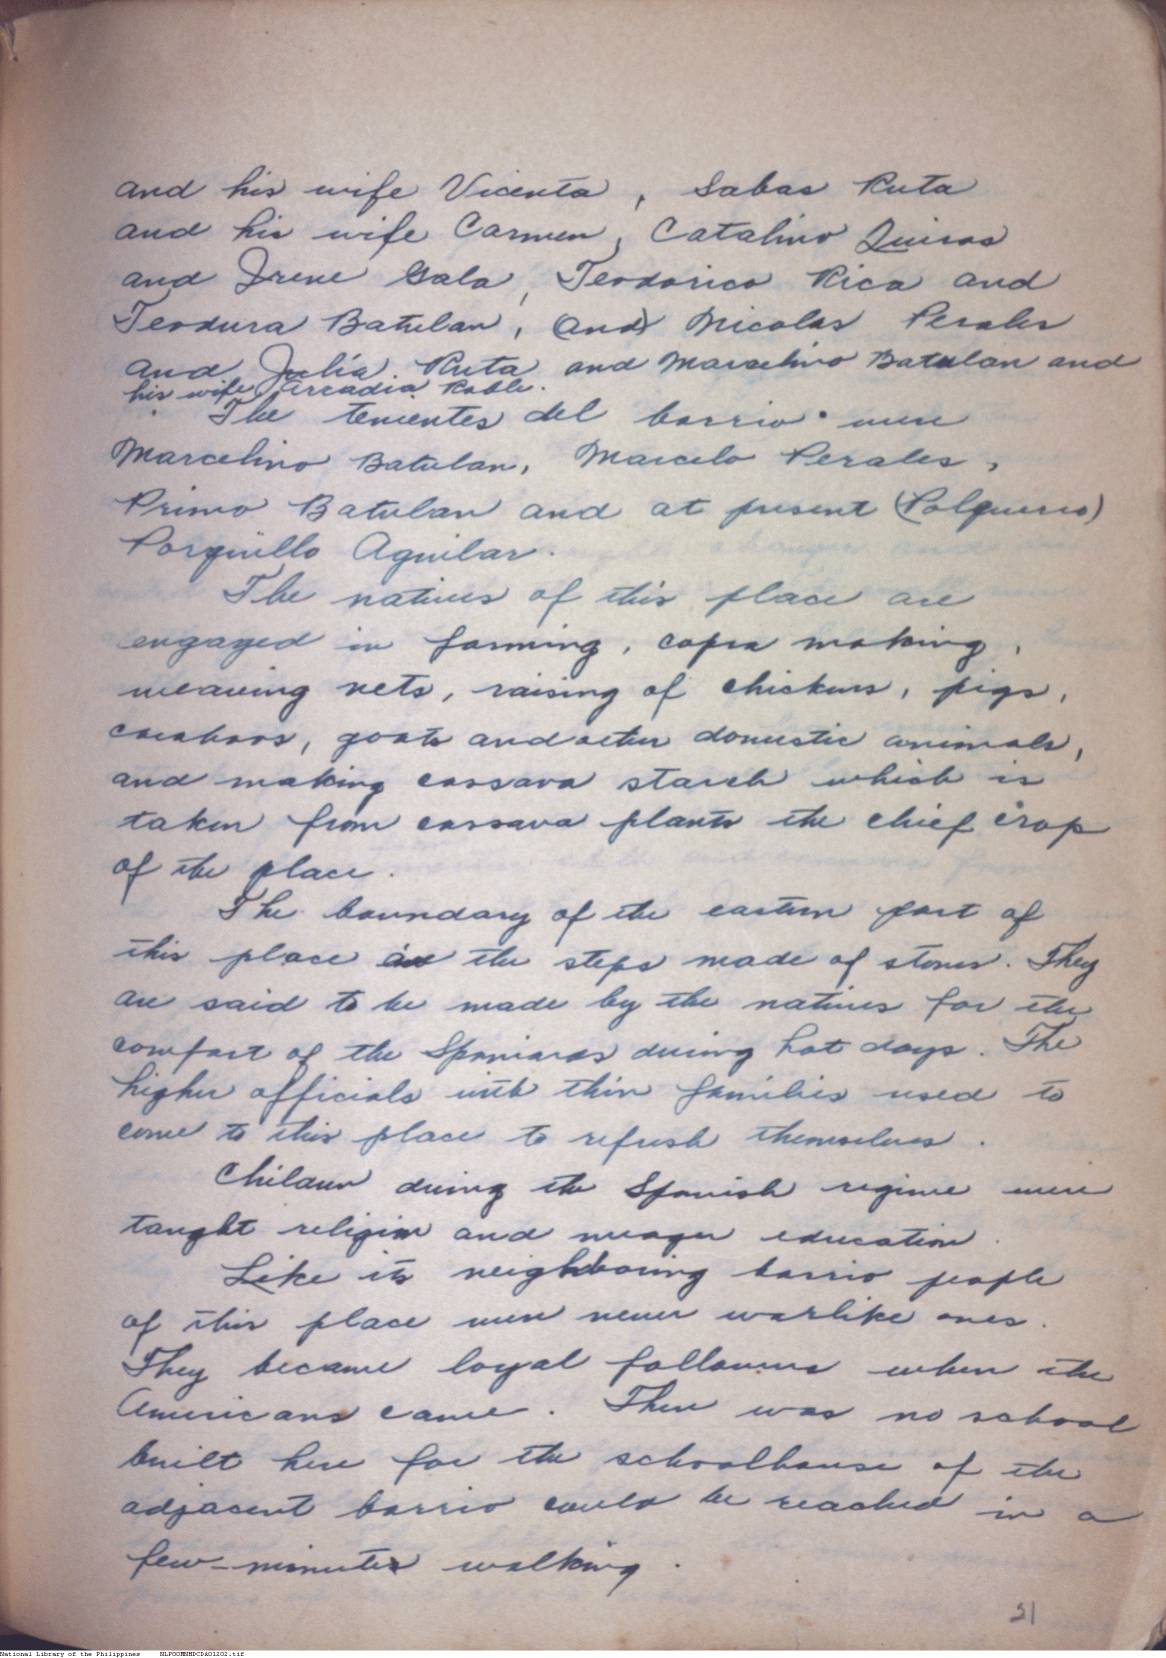 and his wife Vicenta, Sabas Ruta
and his wife Carmen, Catalino Quiros
and Irene Gala, Teodorico Rica and
Teodura Batulan, (and) Nicolas Perales
and Julia Ruta and Marcelino Batulan and
his wife Arcadia Roble.
The tenientes del barrio were
Marcelino Batulan, Marcelo Perales,
Primo Batulan and at present (Polquerio)
Porquillo Aguilar.
The natives of this place are
engaged in farming, copra making,
weaving nets, raising of chickens, pigs,
carabaos, goats and other domestic animals,
and making cassava starch which is
taken from cassava plants the chief crop
of the place.
The boundary of the eastern part of
this place is the steps made of stones. They
are said to be made by the natives for the
comfort of the Spaniards during hot days. The
higher officials with their families used to
come to this place to refresh themselves.
Children during the Spanish regime were
taught religion and meager education.
Like its neighboring barrio people
of this place were never warlike ones.
They became loyal followers when the
Americans came. There was no school
built here for the schoolhouse of the
adjacent barrio could be reached in a
few-minutes walking.
21
National Library of the Philippines NLPOORNHDCDA01202.tif